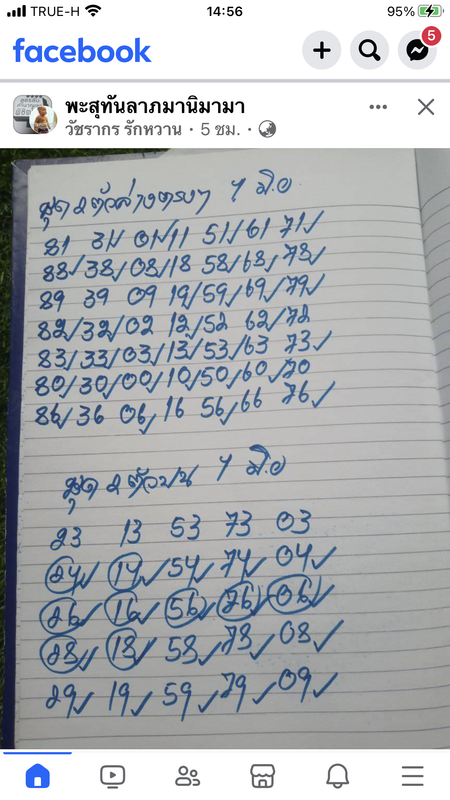 TRUE-H 14:56 95%
facebook 5
พะสุทันลาภมานิมามา
วัชรากร รักหวาน · 5 ชม. ·
ชุด 2 ตัวล่างตรงๆ 7 มือ
81 31/ 01/11 51/61 71/
88/38/08/18 58/68/78/
89 39 09 19/59/69/79/
82/32/02 12/52 62/72
83/33/03/13/53/63 73✓
80/30/00/10/50/60/70
86/36 06/ 16 56/66 76✓
ชุด 2 ตัวบน 7 มือ
23 13 53 73 03
24✓ 14✓ 54✓ 74✓ 04✓
26✓ 16✓ 56✓ 76✓ 06✓
28✓ 18✓ 58✓ 78✓ 08✓
29✓ 19✓ 59✓ 79✓ 09✓